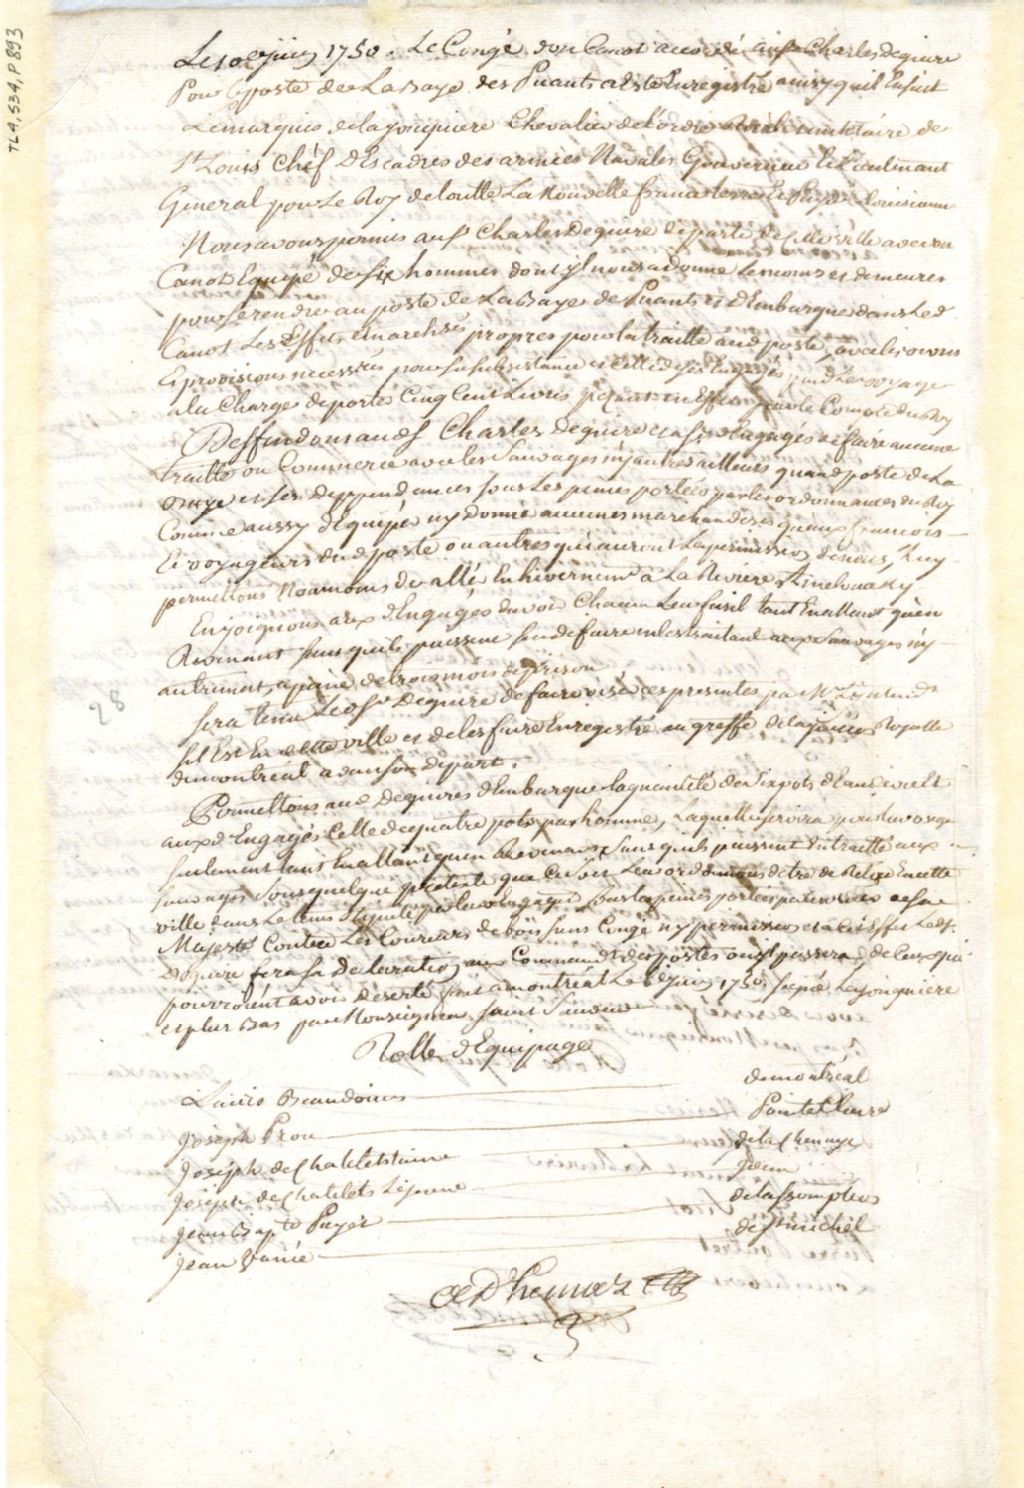 TL4, S34, P893
Le 10e juin 1750. Le Congé d'un Canot accordé au Sr Charles deguire
Pour le poste de La Baye des Puants a Esté Enregistré ainsy quil Ensuit
Le marquis de la jonquiere Chevalier de l'ordre Royal et militaire de
St Louis Chéf D'Escadres des armées Navales Gouverneur & Lieutenant
General pour Le Roy de toutte La Nouvelle france terres & Pays de la Louisianne
Nous avons permis au Sr Charles Deguire de partir de cette ville avec un
Canot Equipé de six hommes dont il nous a donné Les noms et demeures
pour se rendre au poste de La Baye des Puants et d'Embarquer dans Led
Canot Les Effets & march.ses propres pour la traitte aud poste, avec les vivres
Et provisions necess.res pour sa subsistance et celle de ses Engagés pend.t Le voyage
a la Charge de porter Cinq Cent Livres pezant en Effets pour le Compte du Roy
Deffendons aud Sr Charles Deguire et a ses Engagés de faire aucune
traitte ou Commerce avec les Sauvages ny autres ailleurs quaud poste de La
Baye et ses Deppendances sous Les peines portées par les ordonnances du Roy
Comme aussy d'Equiper ny donné aucunes marchandises qu'aux francois
Et voyageurs dud poste ou autres qui auront La permission de nous, Luy
permettons Neamoins de allér En hivernem.t à La Riviere
Enjoignons aux d Engagés d'avoir Chacun Leur fusil tant En allant qu'en
Revenant sans quils puissent sen defaire en les traitant aux Sauvages ny
autrement, a peine de trois mois de prison
Sera tenu Led Sr Deguire de faire visér ces presentes par Mr L'jntend.t
sil Est En cette ville et de les faire Enregistré au greffe de la jurisd.on Royalle
de montréal avant son départ.
Permettons aud Deguire d'Embarquer la quantité de six pots d'Eau de vie Et
aux d Engagés Celle de quatre pots par homme, Laquelle servira pour leur usage
seulement tant En allant quen Revenant sans quils puissent En traitter aux
sauvages sous quelque pretexte que Ce soit Leur ordonnons detre de Retour En cette
ville dans Le tems stipulé par leur Engagé.t sous les peines portées par les de sa
Majesté Contre Les Coureurs de bois sans Congé ny permission et a cet Effet Led Sr
Deguire fera sa declaration aux Command.ts des postes ou jl passera, de Ceux qui
pourroient avoir déserté fait a montréal Le 8e juin 1750. signé Lajonquiere
et plus bas par Monseigneur saint Sauveur
Rolle d'Equipage
Louis Beaudoin de montréal
Joseph Prou Pointe Claire
Joseph de Chatelets de la Chenaye
Joseph de Chatelets Lejeune jdem
Jean Bap.te Payét de lassomption
Jean Vanié de St michél
28